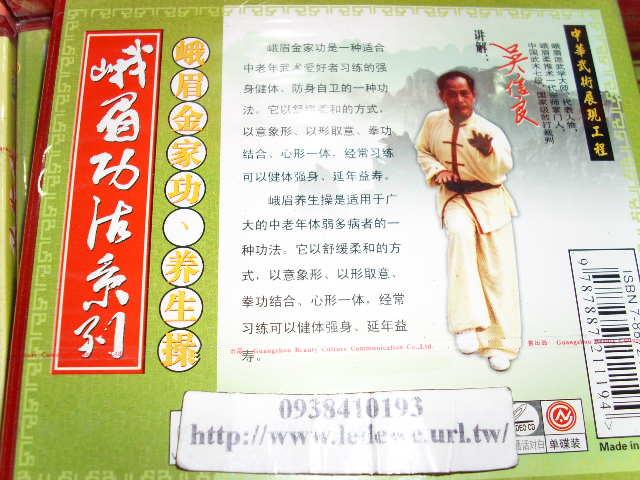 峨眉功法系列
峨眉金家功、养生操
峨眉金家功是一种适合
中老年武术爱好者习练的强
身健体、防身自卫的一种功
法。它以舒缓柔和的方式，
以意象形、以形取意、拳功
结合、心形一体，经常习练
可以健体强身、延年益寿。
峨眉养生操是适用于广
大的中老年体弱多病者的一
种功法。它以舒缓柔和的方
式，以意象形、以形取意、
拳功结合、心形一体，经常
习练可以健体强身、延年益
寿。
讲解：
吴信良
中華武術展現工程
中国武术七段，国家级散打裁判
Guangzhou Beauty Culture Communication Co.,Ltd.
0938410193
http://www.ledewe.url.tw/
单碟装
Made in
ISBN 7-88
9 787887 211194 >